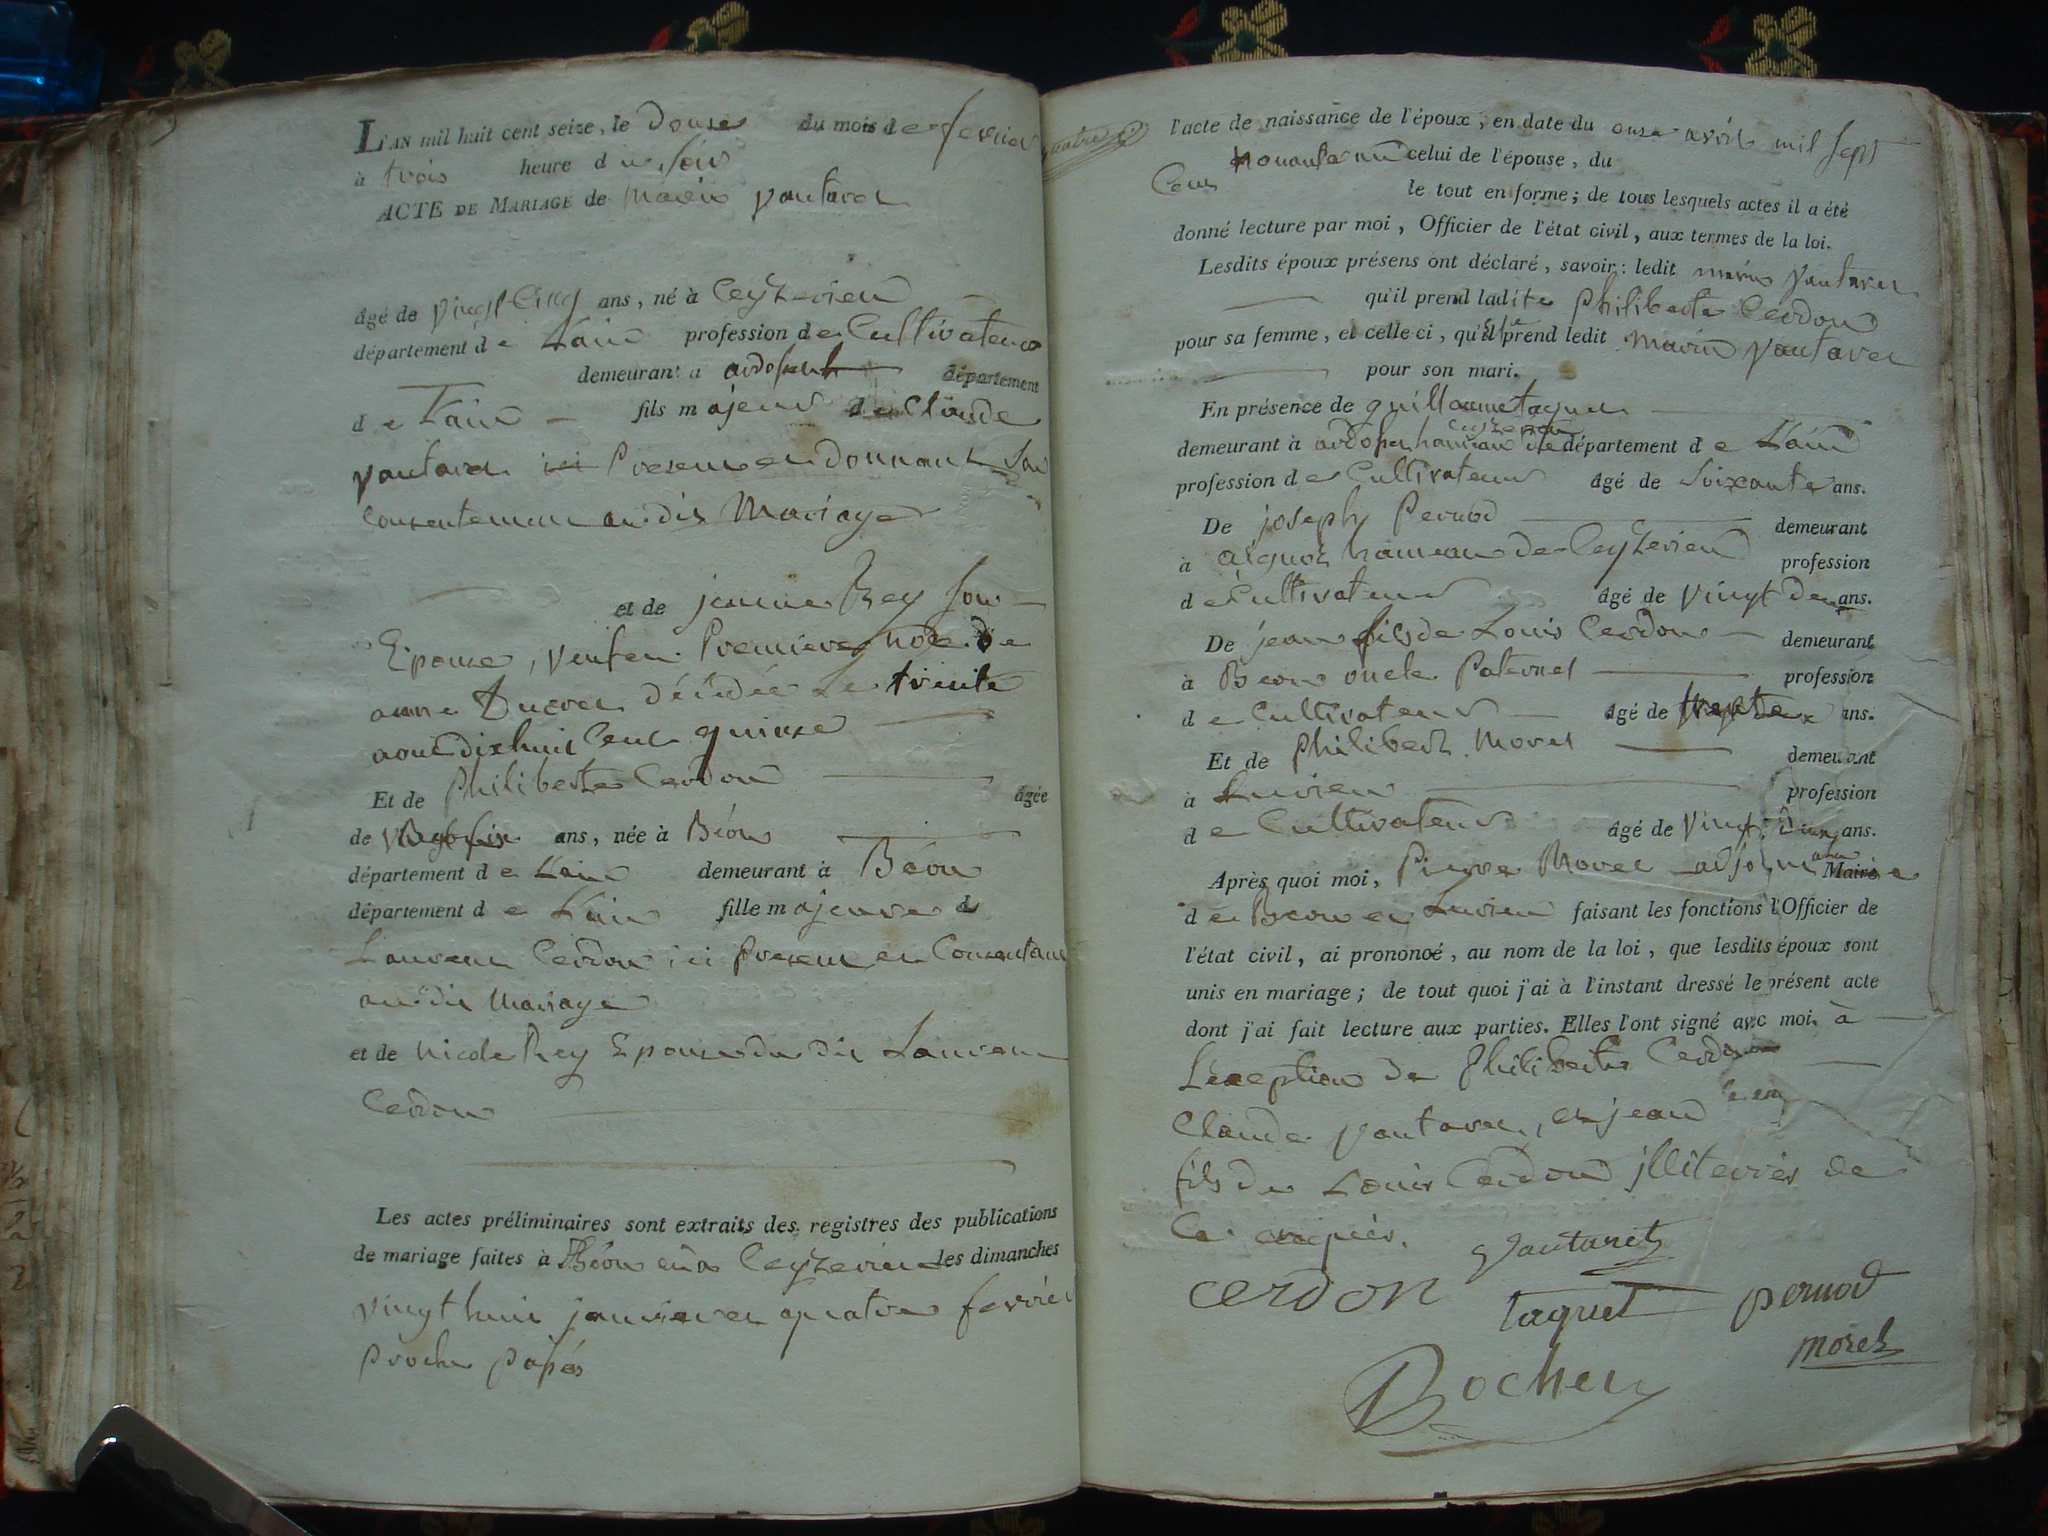 L'AN mil huit cent seize, le Douse du mois de fevrier
à trois heure du Soir
ACTE DE MARIAGE de Marin vautaret
âgé de vingt Cinq ans, né à Ceyzerieu
département de Lain profession de Cultivateur
demeurant à ardosset département
de Lain fils majeur de Claude
vautaret ici Present en donnant Son
Consentement audit Mariage
et de jeanne Rey Son
Epouse, veuf en Premiere noce de
anne Ducret décédée Le trente
aout dix huit Cent quinze
Et de Philiberte Cerdon âgée
de ans, née à Béon
département de Lain demeurant à Béon
département de Lain fille majeure de
Laurent Cerdon ici Present en Consentant
audit Mariage
et de nicole Rey Epouse du dit Laurent
Cerdon
Les actes préliminaires sont extraits des registres des publications
de mariage faites à Béon et à Ceyzerieu les dimanches
vingt huit janvier et quatre fevrier
proche passés
l'acte de naissance de l'époux, en date du onze avril mil sept
Cent nonante un celui de l'épouse, du
le tout en forme; de tous lesquels actes il a été
donné lecture par moi, Officier de l'état civil, aux termes de la loi.
Lesdits époux présens ont déclaré, savoir: ledit marin vautaret
qu'il prend ladite Philiberte Cerdon
pour sa femme, et celle-ci, qu'elle prend ledit Marin vautaret
pour son mari.
En présence de guillaume taquet
Ceyzerieu
demeurant à ardosset hameau de département de Lain
profession de Cultivateur âgé de Soixante ans.
De joseph Pernod demeurant
à aignoz hameau de Ceyzerieu profession
de Cultivateur âgé de vingt Deux ans.
De jean fils de Louis Cerdon demeurant
à Beon oncle Paternel profession
de Cultivateur âgé de ans.
Et de Philibert Moret demeurant
à Luvieu profession
de Cultivateur âgé de vingt ans.
Après quoi moi, Pierre Moret adjoint a la Mairie
de Beon et Luvieu faisant les fonctions d'Officier de
l'état civil, ai prononcé, au nom de la loi, que lesdits époux sont
unis en mariage; de tout quoi j'ai à l'instant dressé le présent acte
dont j'ai fait lecture aux parties. Elles l'ont signé avec moi, à
L'exeption de Philiberte Cerdon
Claude vautaret, et jean
fils de Louis Cerdon jlliterrés de
Ce enquis.
vautaret
cerdon taquet pernod
moret
Bochet